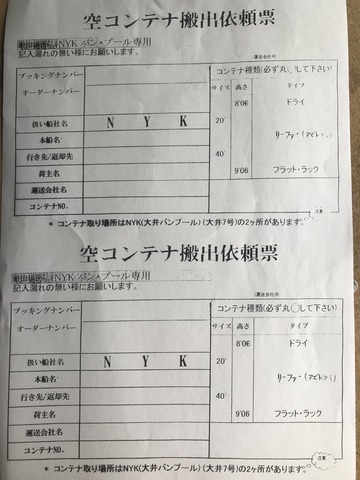 空コンテナ搬出依頼票
NYK バン・プール専用
記入漏れの無い様にお願いします。
(運送会社用)
ブッキングナンバー
オーダーナンバー
扱い船社名 N Y K
本船名
行き先/返却先
荷主名
運送会社名
コンテナNO.
コンテナ種類(必ず丸〇して下さい)
サイズ 高さ タイプ
8'06 ドライ
20'
リーファー(アズドライ)
40'
9'06 フラット・ラック
注意
* コンテナ取り場所はNYK(大井バンプール)(大井7号)の2ヶ所があります。
空コンテナ搬出依頼票
NYK バン・プール専用
記入漏れの無い様にお願いします。
(運送会社用)
ブッキングナンバー
オーダーナンバー
扱い船社名 N Y K
本船名
行き先/返却先
荷主名
運送会社名
コンテナNO.
コンテナ種類(必ず丸〇して下さい)
サイズ 高さ タイプ
8'06 ドライ
20'
リーファー(アズドライ)
40'
9'06 フラット・ラック
注意
* コンテナ取り場所はNYK(大井バンプール)(大井7号)の2ヶ所があります。